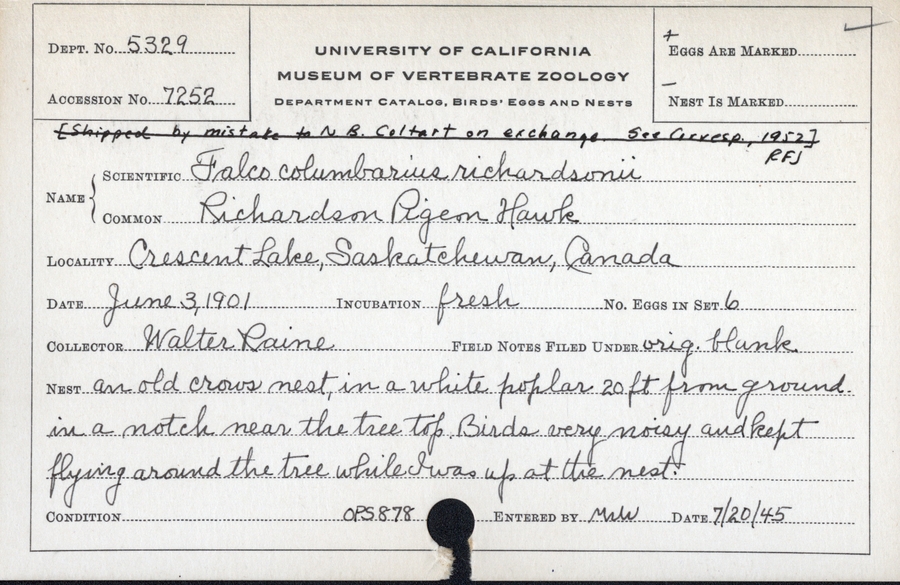 DEPT. No. 5329
ACCESSION No. 7252
UNIVERSITY OF CALIFORNIA
MUSEUM OF VERTEBRATE ZOOLOGY
DEPARTMENT CATALOG, BIRDS' EGGS AND NESTS
+
EGGS ARE MARKED
—
NEST IS MARKED
[Shipped by mistake to N B. Coltart on exchange. See Corresp, 1952]
RFJ
NAME
SCIENTIFIC Falco columbarius richardsonii
COMMON Richardson Pigeon Hawk
LOCALITY Crescent Lake, Saskatchewan, Canada
DATE June 3, 1901 INCUBATION fresh No. EGGS IN SET 6
COLLECTOR Walter Raine FIELD NOTES FILED UNDER orig. blank
NEST an old crows nest, in a white poplar 20 ft from ground.
in a notch near the tree top. Birds very noisy and kept
flying around the tree while I was up at the nest.
CONDITION OPS878 ENTERED BY MWW DATE 7/20/45